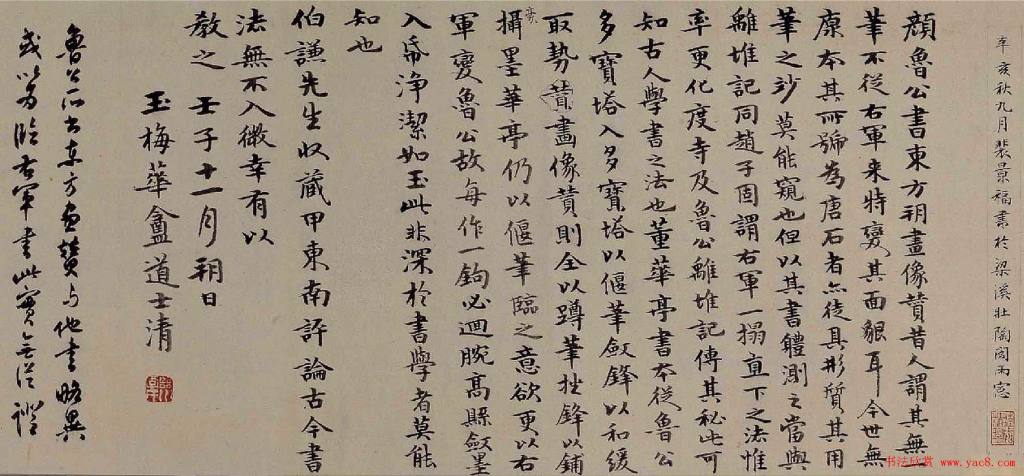 辛亥秋九月裴景福書於梁溪壯陶閣雨窓
顏魯公書東方朔畫像贊昔人謂其無一
筆不從右軍来特變其面貌耳今世無
康本其所號為唐石者亦徒具形質其用
筆之妙莫能窺也但以其書體測之當與
離堆記同趙子固謂右軍一搨直下之法惟
率更化度寺及魯公離堆記傳其秘此可
知古人學書之法也董華亭書本從魯公
多寶塔入多寶塔以偃筆斂鋒以和緩
取勢贊畫像贊則全以蹲筆挫鋒以鋪
豪
攝墨華亭仍以偃筆臨之意欲更以右
軍變魯公故每作一鉤必迴腕高懸斂墨
入帋淨潔如玉此非深於書學者莫能
知也
伯謙先生收藏甲東南評論古今書
法無不入微幸有以
教之 壬子十一月朔日
玉梅華盦道士清
魯公所書東方畫贊与他書略異
或以為臨右軍書此實無從證
书法欣赏 www.yac8.com